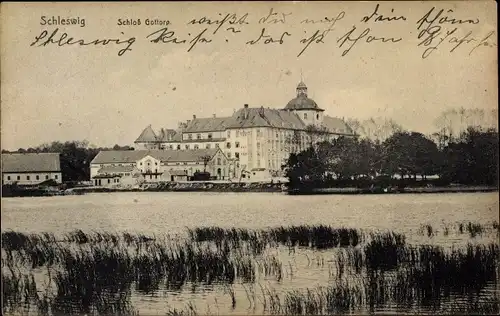 Schleswig
Schloß Gottorp
weißt du noch Deine schöne
Schleswig Reise? das ist schon